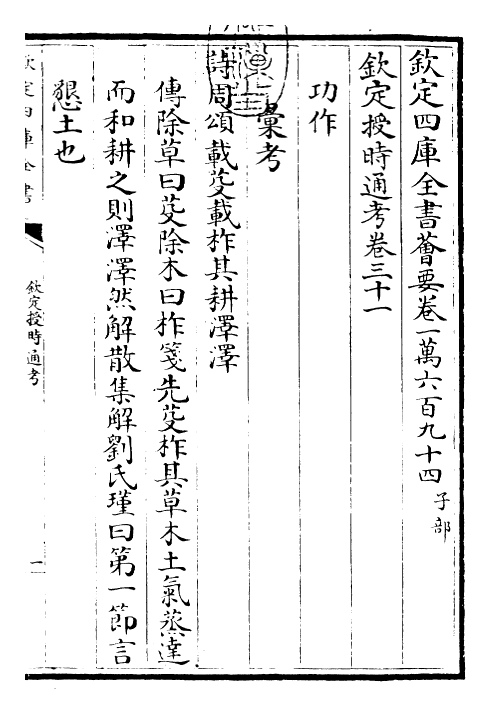 欽定四庫全書薈要卷一萬六百九十四 子部
欽定授時通考卷三十一
功作
彙考
詩周頌載芟載柞其耕澤澤
傳除草曰芟除木曰柞箋先芟柞其草木土氣蒸達
而和耕之則澤澤然解散集解劉氏瑾曰第一節言
懇土也
欽定四庫全書
欽定授時通考
一